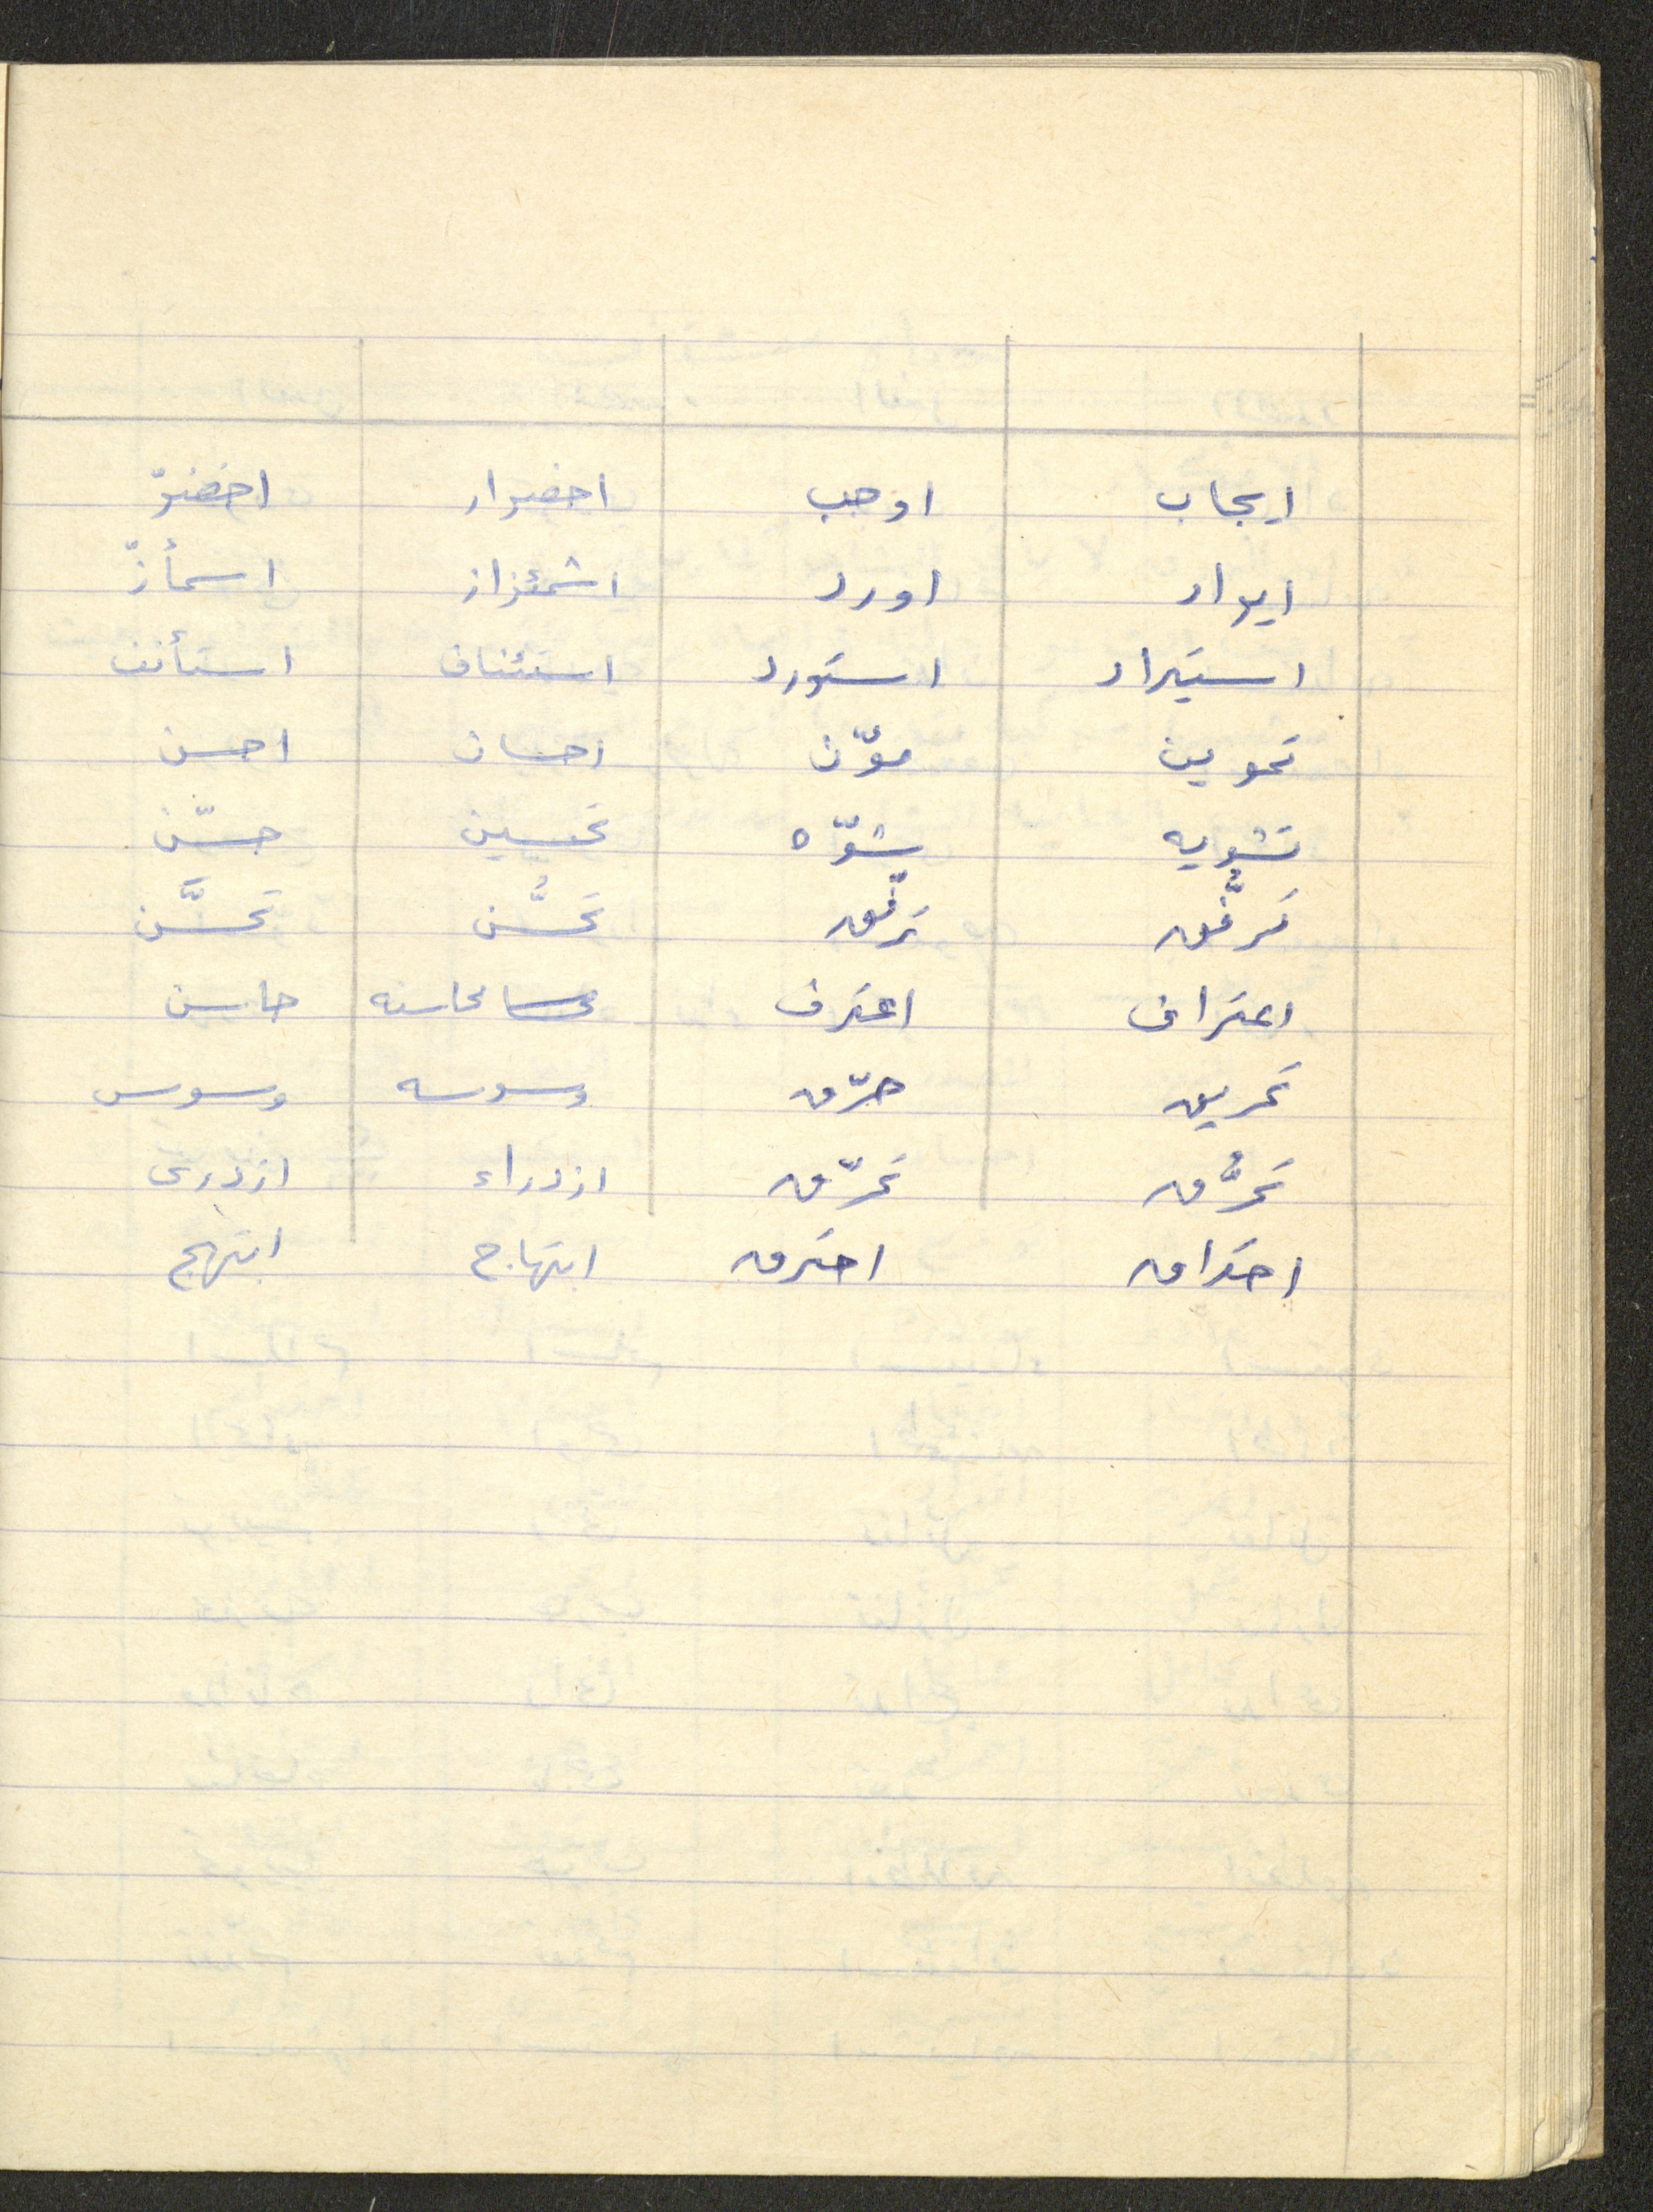 ايجاب اوجب اخضرار اخضوّ
ايراد اورد اشمئزاز اسمأزّ
استيراد استورد استئناف استأنف
تموين موّن احسان احسن
تشويه شوّه تحسين حسّن
ترفُّق ترفّق تحسُّن تحسَّن
اعتراف اعترف محاسنه حاسن
تحريق حرّق وسوسه وسوس
تحرُّق تحرّق ازدراء ازدرى
احتراق احترق ابتهاج ابتهج